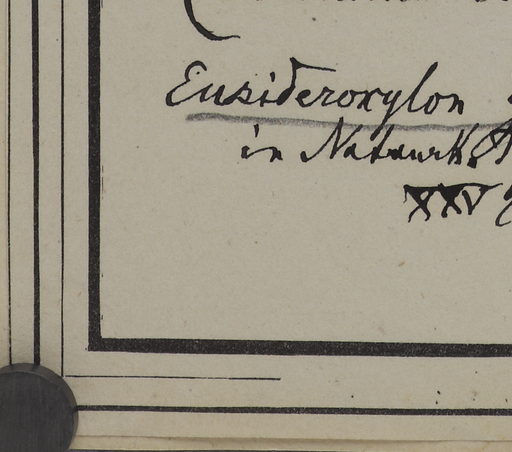 Eusideroxylon
in Natuurk.
XXV